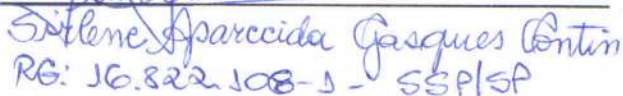 Sirlene Aparecida Gasques Contin
RG: 16.822.108-1 - SSP/SP